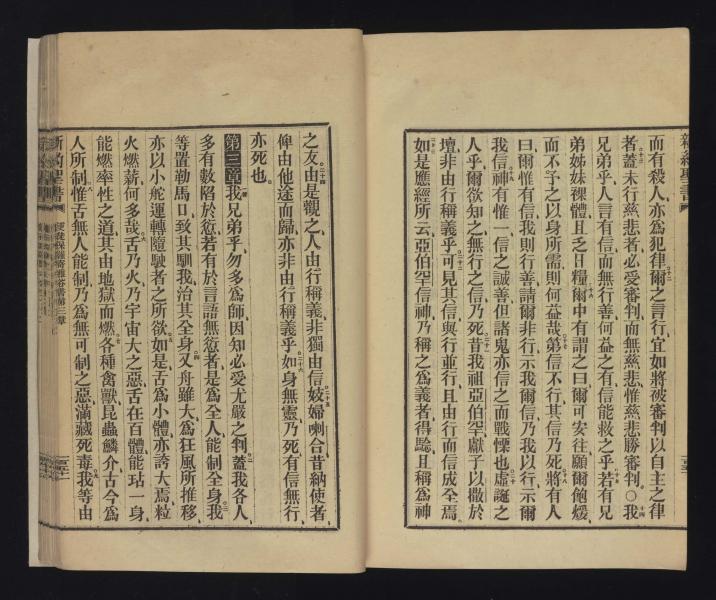 新約聖書
而有殺人、亦爲犯律、爾之言行、宜如將被審判以自主之律
者、蓋未行慈悲者、必受審判而無慈悲、惟慈悲勝審判、○我
兄弟乎、人言有信而無行善、何益之有、信能救之乎、若有兄
弟姊妹裸體、且乏日糧、爾中有謂之曰、爾可安往、願爾飽煖、
而不予之以身所需、則何益哉、第信不行、其信乃死、將有人
曰、爾惟有信、我則行善、請爾非行、示我爾信、乃我以行、示爾
我信、神有惟一、信之誠善、但諸鬼亦信之而戰慄也、虛誕之
人乎、爾欲知之、無行之信乃死、昔我祖亞伯罕、獻子以撒於
壇、非由行稱義乎、可見其信與行並行、且由行而信成全焉、
如是應經所云、亞伯罕信神、乃稱之爲義者得騐、且稱爲神
之友、由是觀之、人由行稱義、非獨由信、妓婦喇合、昔納使者、
俾由他途而歸、亦非由行稱義乎、如身無靈乃死、有信無行、
亦死也。
第三章我兄弟乎、勿多爲師、因知必受尤嚴之判、蓋我各人
多有數陷於愆、若有於言語無愆者、是爲全人、能制全身、我
等置勒馬口、致其馴我、治其全身、又舟雖大、爲狂風所推移、
亦以小舵運轉、隨駛者之所欲、如是舌爲小體、亦誇大焉、粒
火燃薪何多哉、舌乃火、乃宇宙大之惡、舌在百體、能玷一身、
能燃率性之道、其由地獄而燃、各種禽獸昆蟲鱗介、古今爲
人所制、惟舌無人能制、乃爲無可制之惡、滿藏死毒、我等由
新約聖書